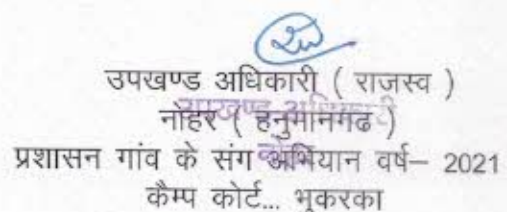 उपखण्ड अधिकारी ( राजस्व )
उपखण्ड अधिकारी
नोहर ( हनुमानगढ )
प्रशासन गांव के संग अभियान वर्ष– 2021
कैम्प कोर्ट... भूकरका